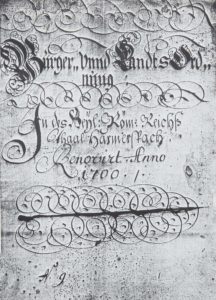 Bürger, Vnnd Landts Ord=
nung
In des Heyl: Röm: Reichß
Thaal Harmerspach
Renovirt Anno
1700.